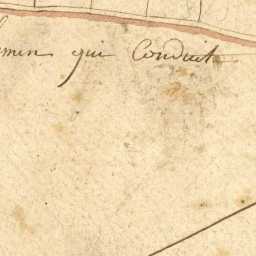 emin qui Conduit